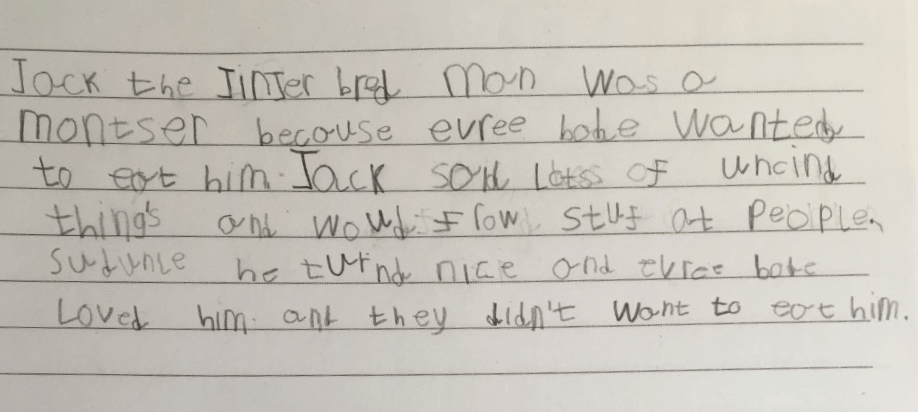 Jack the Jinjer bred man was a
montser becouse evree bode wanted
to eat him. Jack sed Lots of uncind
things and woud frow stuf at People.
sudunle he turnd nice and evree bode
Loved him. and they didn't want to eat him.